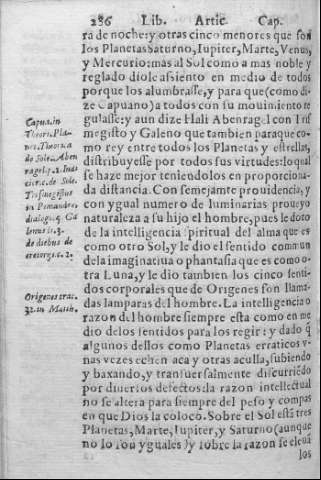 286 Lib. Artic. Cap.
ra de noche: y otras cinco menores que son
los Planetas Saturno, Iupiter, Marte, Venus,
y Mercurio: mas al Sol como a mas noble y
reglado diole assiento en medio de todos
porque los alumbrasse, y para que (como di-
ze Capuano) a todos con su mouimiento re
gulasse: y aun dize Hali Abenragel con Tris
megisto y Galeno que tambien para que co-
mo rey entre todos los Planetas y estrellas,
distribuyesse por todos sus virtudes: lo qual
se haze mejor teniendolos en proporciona-
da distancia. Con semejante prouidencia, y
con ygual numero de luminarias proueyo
naturaleza a su hijo el hombre, pues le doto
de la intelligencia spiritual del alma que es
como otro Sol, y le dio el sentido commun
de la imaginatiua o phantasia que es como o
tra Luna, y le dio tambien los cinco senti-
dos corporales que de Origenes son llama-
das lamparas del hombre. La intelligencia o
razon del hombre siempre esta como en me
dio de los sentidos para los regir: y dado q̃
algunos dellos como Planetas erraticos v-
nas vezes echen aca y otras aculla, subiendo
y baxando, y transuersalmente discurriēdo
por diuersos defectos: la razon intellectual
no se altera para siempre del peso y compas
en que Dios la colocò. Sobre el Sol està tres
Planetas, Marte, Iupiter, y Saturno (aunque
no son yguales) y sobre la razon se eleuā
los
Capua. in
Theori. Pla-
net. Theorica
de Sole. Aben
ragel p. 1. Iud.
cior. c. de Sole.
Trismegistus
in Pemandro,
dialogo. 5. Ga
lenus li. 3.
de diebus de
cretorijs. c. 2.
Origenes trac.
32. in Matth.